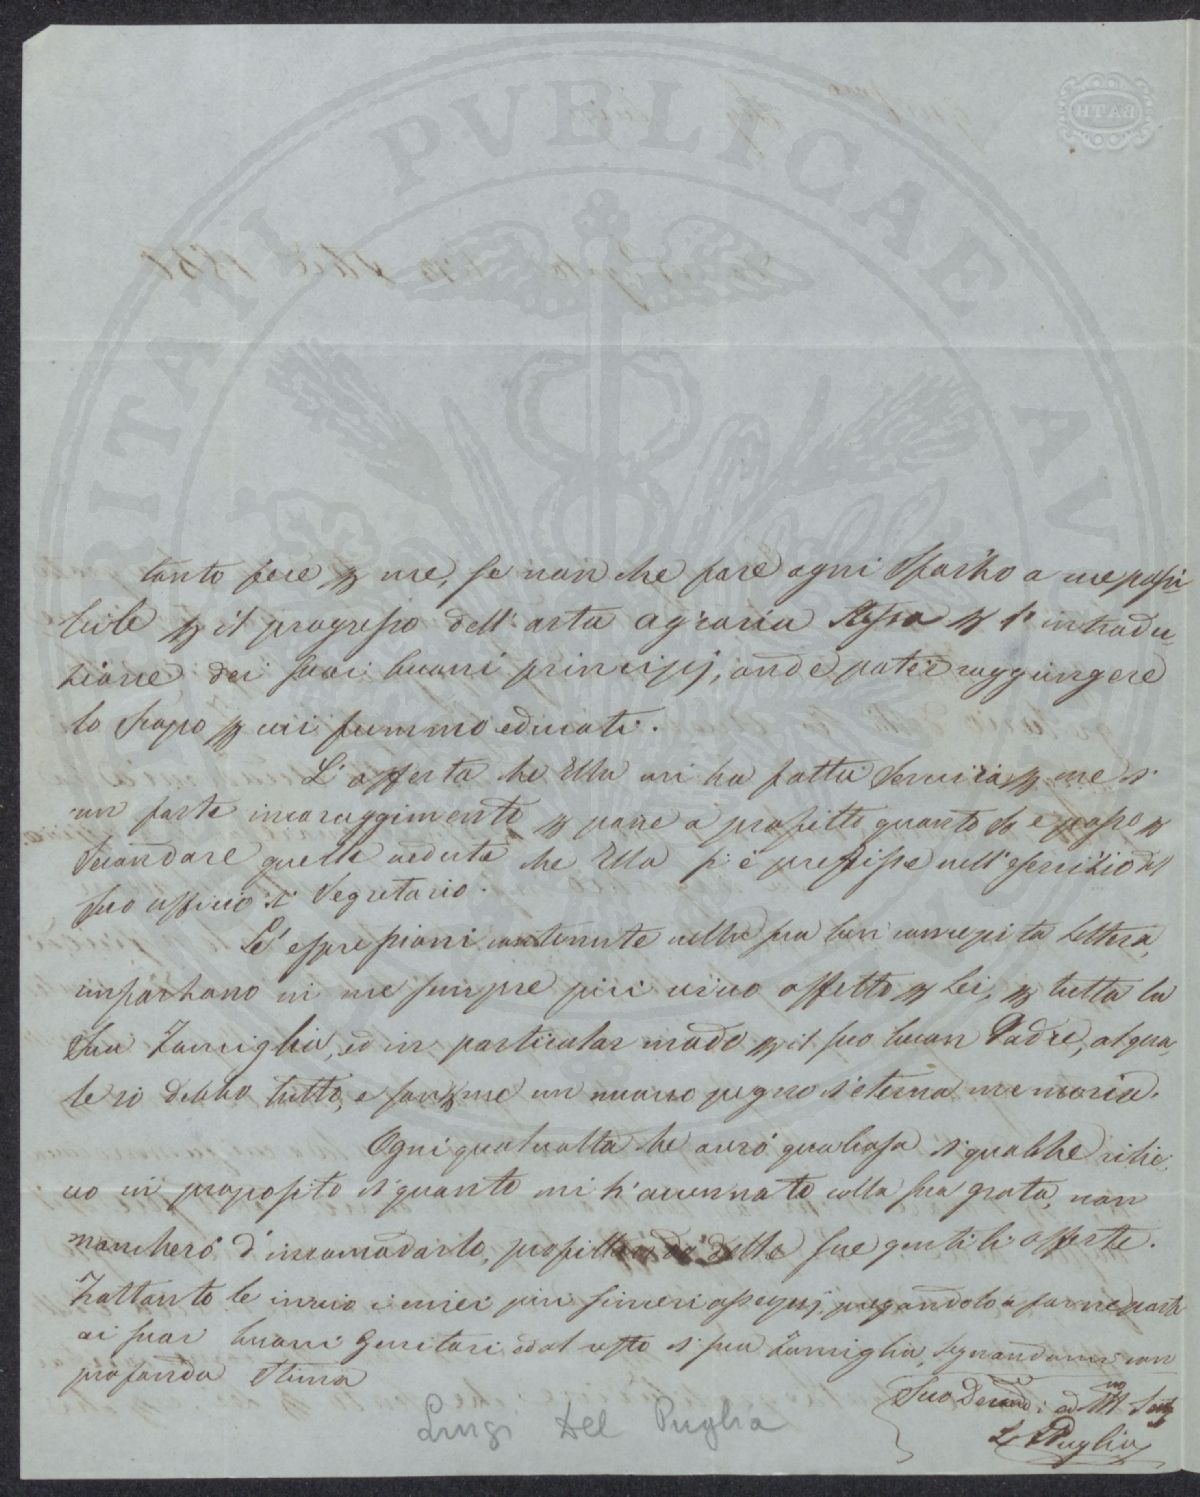 PVBLICAE
BATH
tanto fece p me, se non che fare ogni sforzo a me possi
bile p il progresso dell'arta agraria stessa p l'introdu-
zione dei suoi buoni principj, onde poter raggiungere
lo scopo p cui fummo educati.
L'offerta che Ella mi ha fatta servirà p me d'
un forte incoraggimento p porre a profitto quanto so e posso p
secondare quelle vedute che Ella si è prefisse nell'esercizio del
suo ufficio di Segretario.
Le espressioni contenute nella sua ben concepita Lettera,
infondano in me sempre più vivo affetto p Lei, p tutta la
sua Famiglia, ed in particolar modo p il suo buon Padre, al qua-
le io debbo tutto, e son p me un nuovo pegno d'eterna memoria.
Ogni qualvolta che avrò qualcosa di qualche rilie-
vo in proposito di quanto mi h'accennato colla sua grata, non
mancherò d'incomodarlo, profittando delle sue gentili offerte.
Frattanto le invio i miei più sinceri ossequj pregandolo a farne parte
ai suoi buoni Genitori ed al resto di sua Famiglia, segnandomi con
profonda stima
Suo
L D Puglia
Luigi Del Puglia